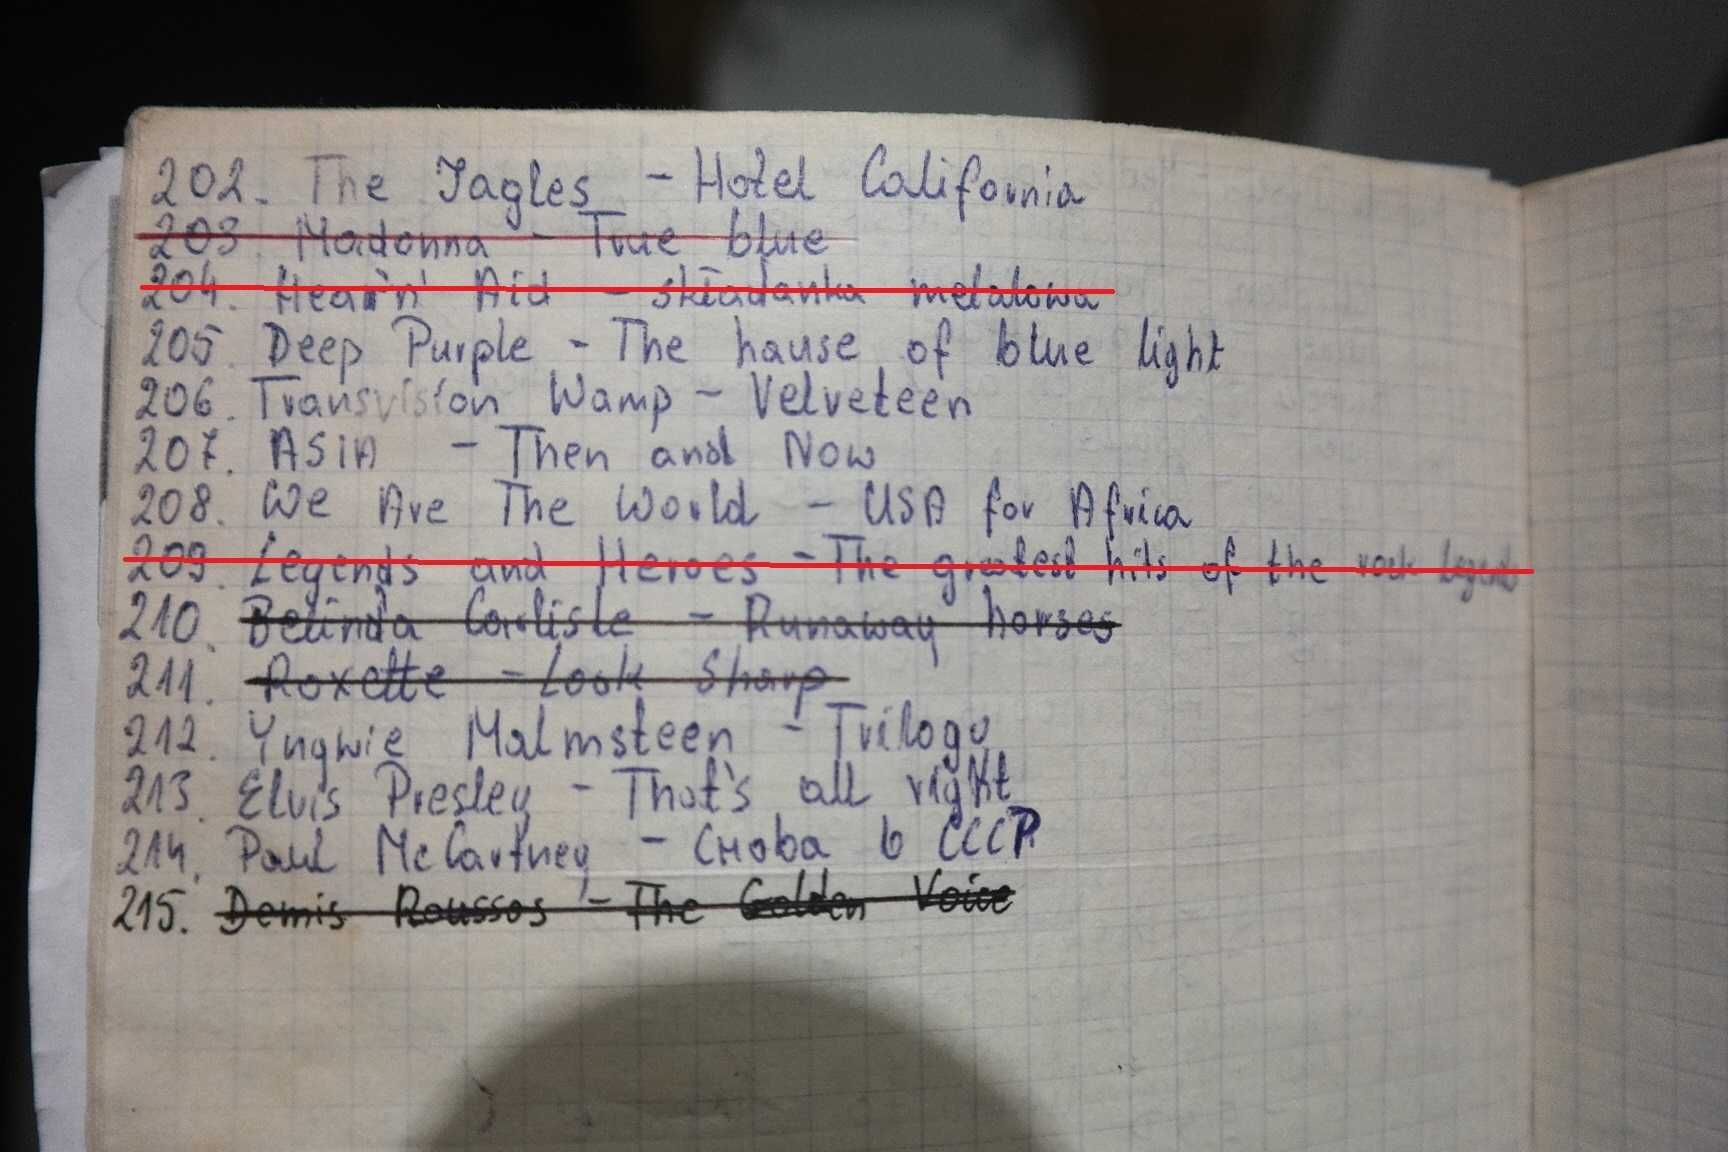 202. The Jagles - Hotel California
203 Madonna - True blue
204. Hear'n' Aid - składanka metalowa
205. Deep Purple - The hause of blue light
206. Transvision Wamp - Velveteen
207. ASIA - Then and Now
208. We Are The World - USA for Africa
209. Legends and Heroes - The greatest hits of the rock legends
210. Belinda Carlisle - Runaway horses
211. Roxette - Look Sharp
212. Yngwie Malmsteen - Trilogy
213. Elvis Presley - That's all right
214. Paul McCartney - Снова в СССР
215. Demis Roussos - The Golden Voice